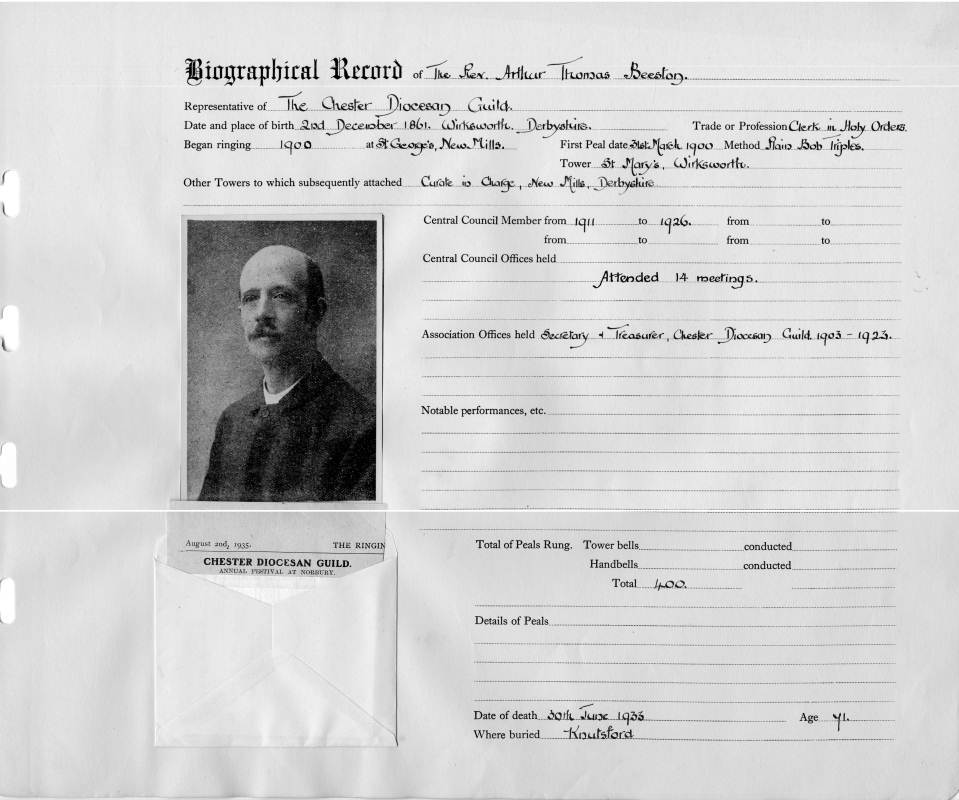 Biographical Record of The Rev. Arthur Thomas Beeston.
Representative of The Chester Diocesan Guild.
Date and place of birth 2nd December 1861. Wirksworth. Derbyshire. Trade or Profession Clerk in Holy Orders.
Began ringing 1900 at St George's, New Mills. First Peal date 31st March 1900 Method Plain Bob Triples.
Tower St Mary's, Wirksworth.
Other Towers to which subsequently attached Curate in Charge, New Mills, Derbyshire
Central Council Member from 1911 to 1926. from to
from to from to
Central Council Offices held
Attended 14 meetings.
Association Offices held Secretary & Treasurer, Chester Diocesan Guild 1903 - 1923.
Notable performances, etc.
August 2nd, 1935. THE RINGIN
CHESTER DIOCESAN GUILD.
ANNUAL FESTIVAL AT NORBURY.
Total of Peals Rung. Tower bells conducted
Handbells conducted
Total 400.
Details of Peals
Date of death 30th June 1933 Age 71.
Where buried Knutsford